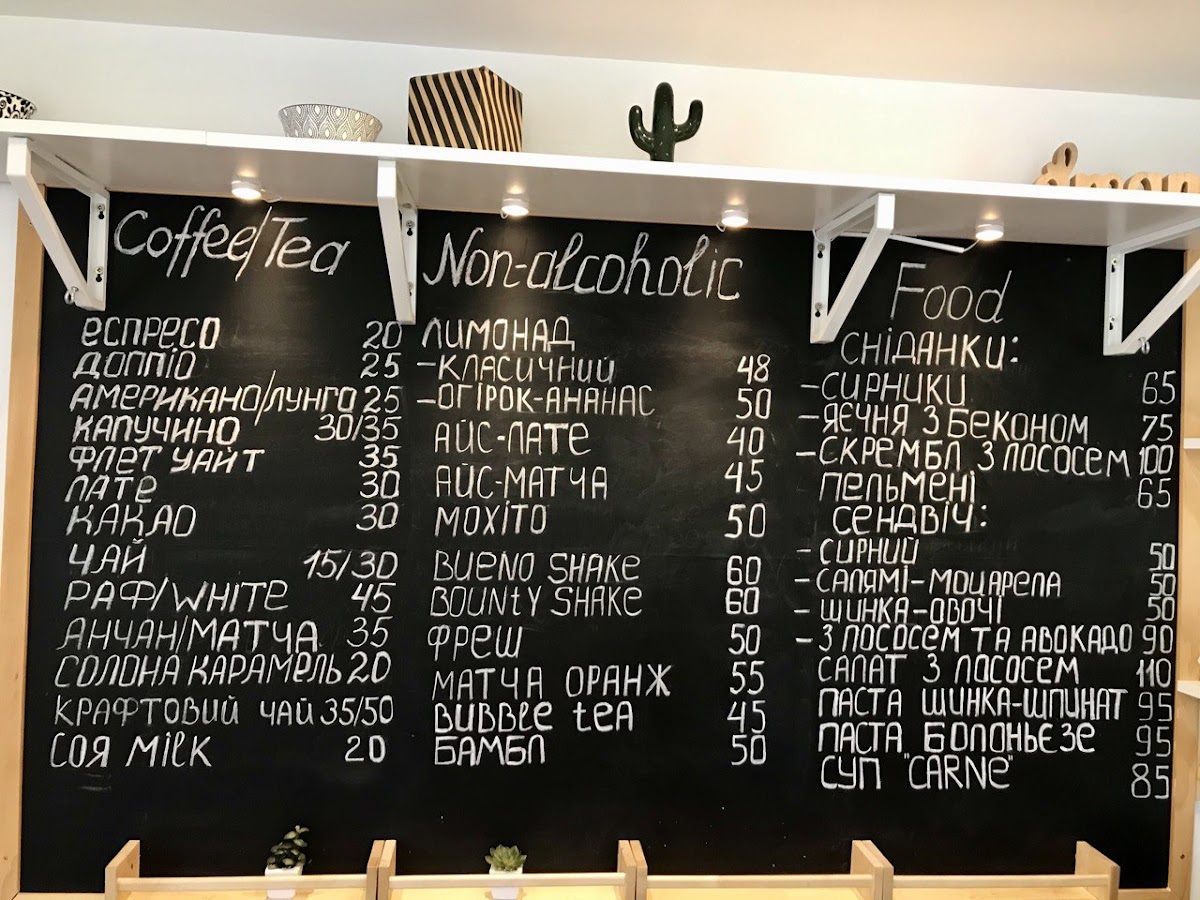 Coffee/Tea
еспресо 20
доппіо 25
американо/лунго 25
капучино 30/35
флет уайт 35
лате 30
какао 30
чай 15/30
раф/white 45
анчан/матча 35
солона карамель 20
крафтовий чай 35/50
соя milk 20
Non-alcoholic
лимонад
-класичний 48
-огірок-ананас 50
айс-лате 40
айс-матча 45
мохіто 50
Bueno shake 60
Bounty shake 60
фреш 50
матча оранж 55
Bubble tea 45
бамбл 50
Food
сніданки:
-сирники 65
-яєчня з беконом 75
-скрембл з лососем 100
пельмені 65
сендвіч:
-сирний 50
-салямі-моцарела 50
-шинка-овочі 50
-з лососем та авокадо 90
салат з лососем 110
паста шинка-шпинат 95
паста болоньєзе 95
суп "CARNe" 85